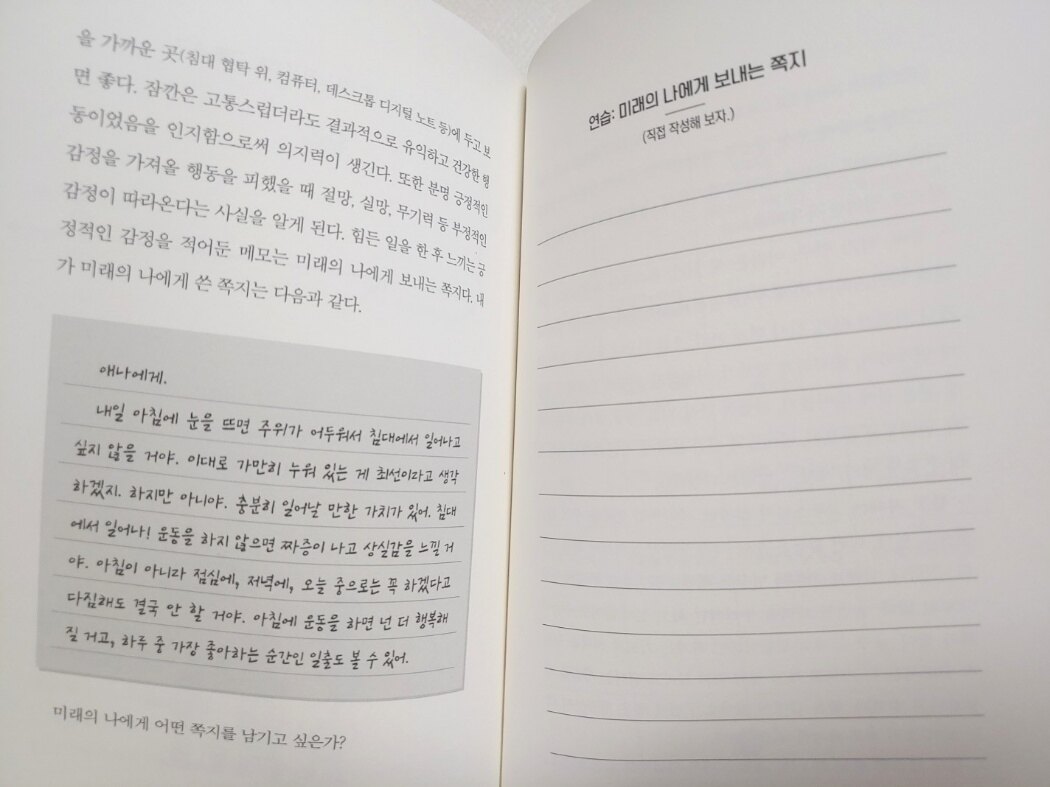 을 가까운 곳(침대 협탁 위, 컴퓨터, 데스크톱 디지털 노트 등)에 두고 보
면 좋다. 잠깐은 고통스럽더라도 결과적으로 유익하고 건강한 행
동이었음을 인지함으로써 의지력이 생긴다. 또한 분명 긍정적인
감정을 가져올 행동을 피했을 때 절망, 실망, 무기력 등 부정적인
감정이 따라온다는 사실을 알게 된다. 힘든 일을 한 후 느끼는 긍
정적인 감정을 적어둔 메모는 미래의 나에게 보내는 쪽지다. 내
가 미래의 나에게 쓴 쪽지는 다음과 같다.
애나에게.
내일 아침에 눈을 뜨면 주위가 어두워서 침대에서 일어나고
싶지 않을 거야. 이대로 가만히 누워 있는 게 최선이라고 생각
하겠지. 하지만 아니야. 충분히 일어날 만한 가치가 있어. 침대
에서 일어나! 운동을 하지 않으면 짜증이 나고 상실감을 느낄 거
야. 아침이 아니라 점심에, 저녁에, 오늘 중으로는 꼭 하겠다고
다짐해도 결국 안 할 거야. 아침에 운동을 하면 넌 더 행복해
질 거고, 하루 중 가장 좋아하는 순간인 일출도 볼 수 있어.
미래의 나에게 어떤 쪽지를 남기고 싶은가?
연습: 미래의 나에게 보내는 쪽지
(직접 작성해 보자.)